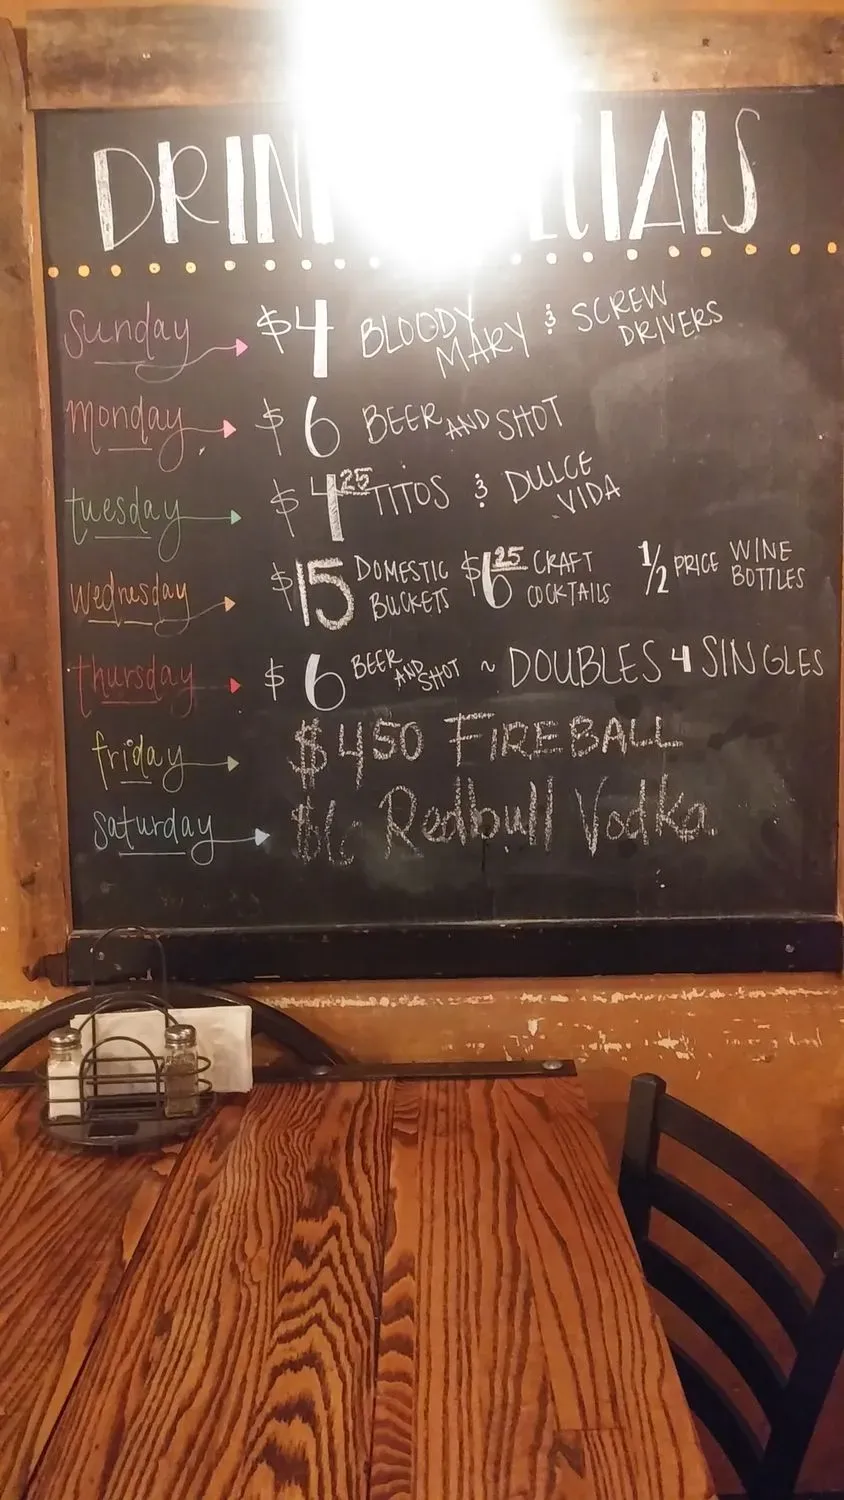 DRINK SPECIALS
Sunday $4 BLOODY MARY & SCREW DRIVERS
Monday $6 BEER AND SHOT
tuesday $4 25 TITOS & DULCE VIDA
Wednesday $15 DOMESTIC BUCKETS $6 25 CRAFT COCKTAILS 1/2 PRICE WINE BOTTLES
thursday $6 BEER AND SHOT ~ DOUBLES 4 SINGLES
friday $450 FIREBALL
Saturday $6 Redbull Vodka